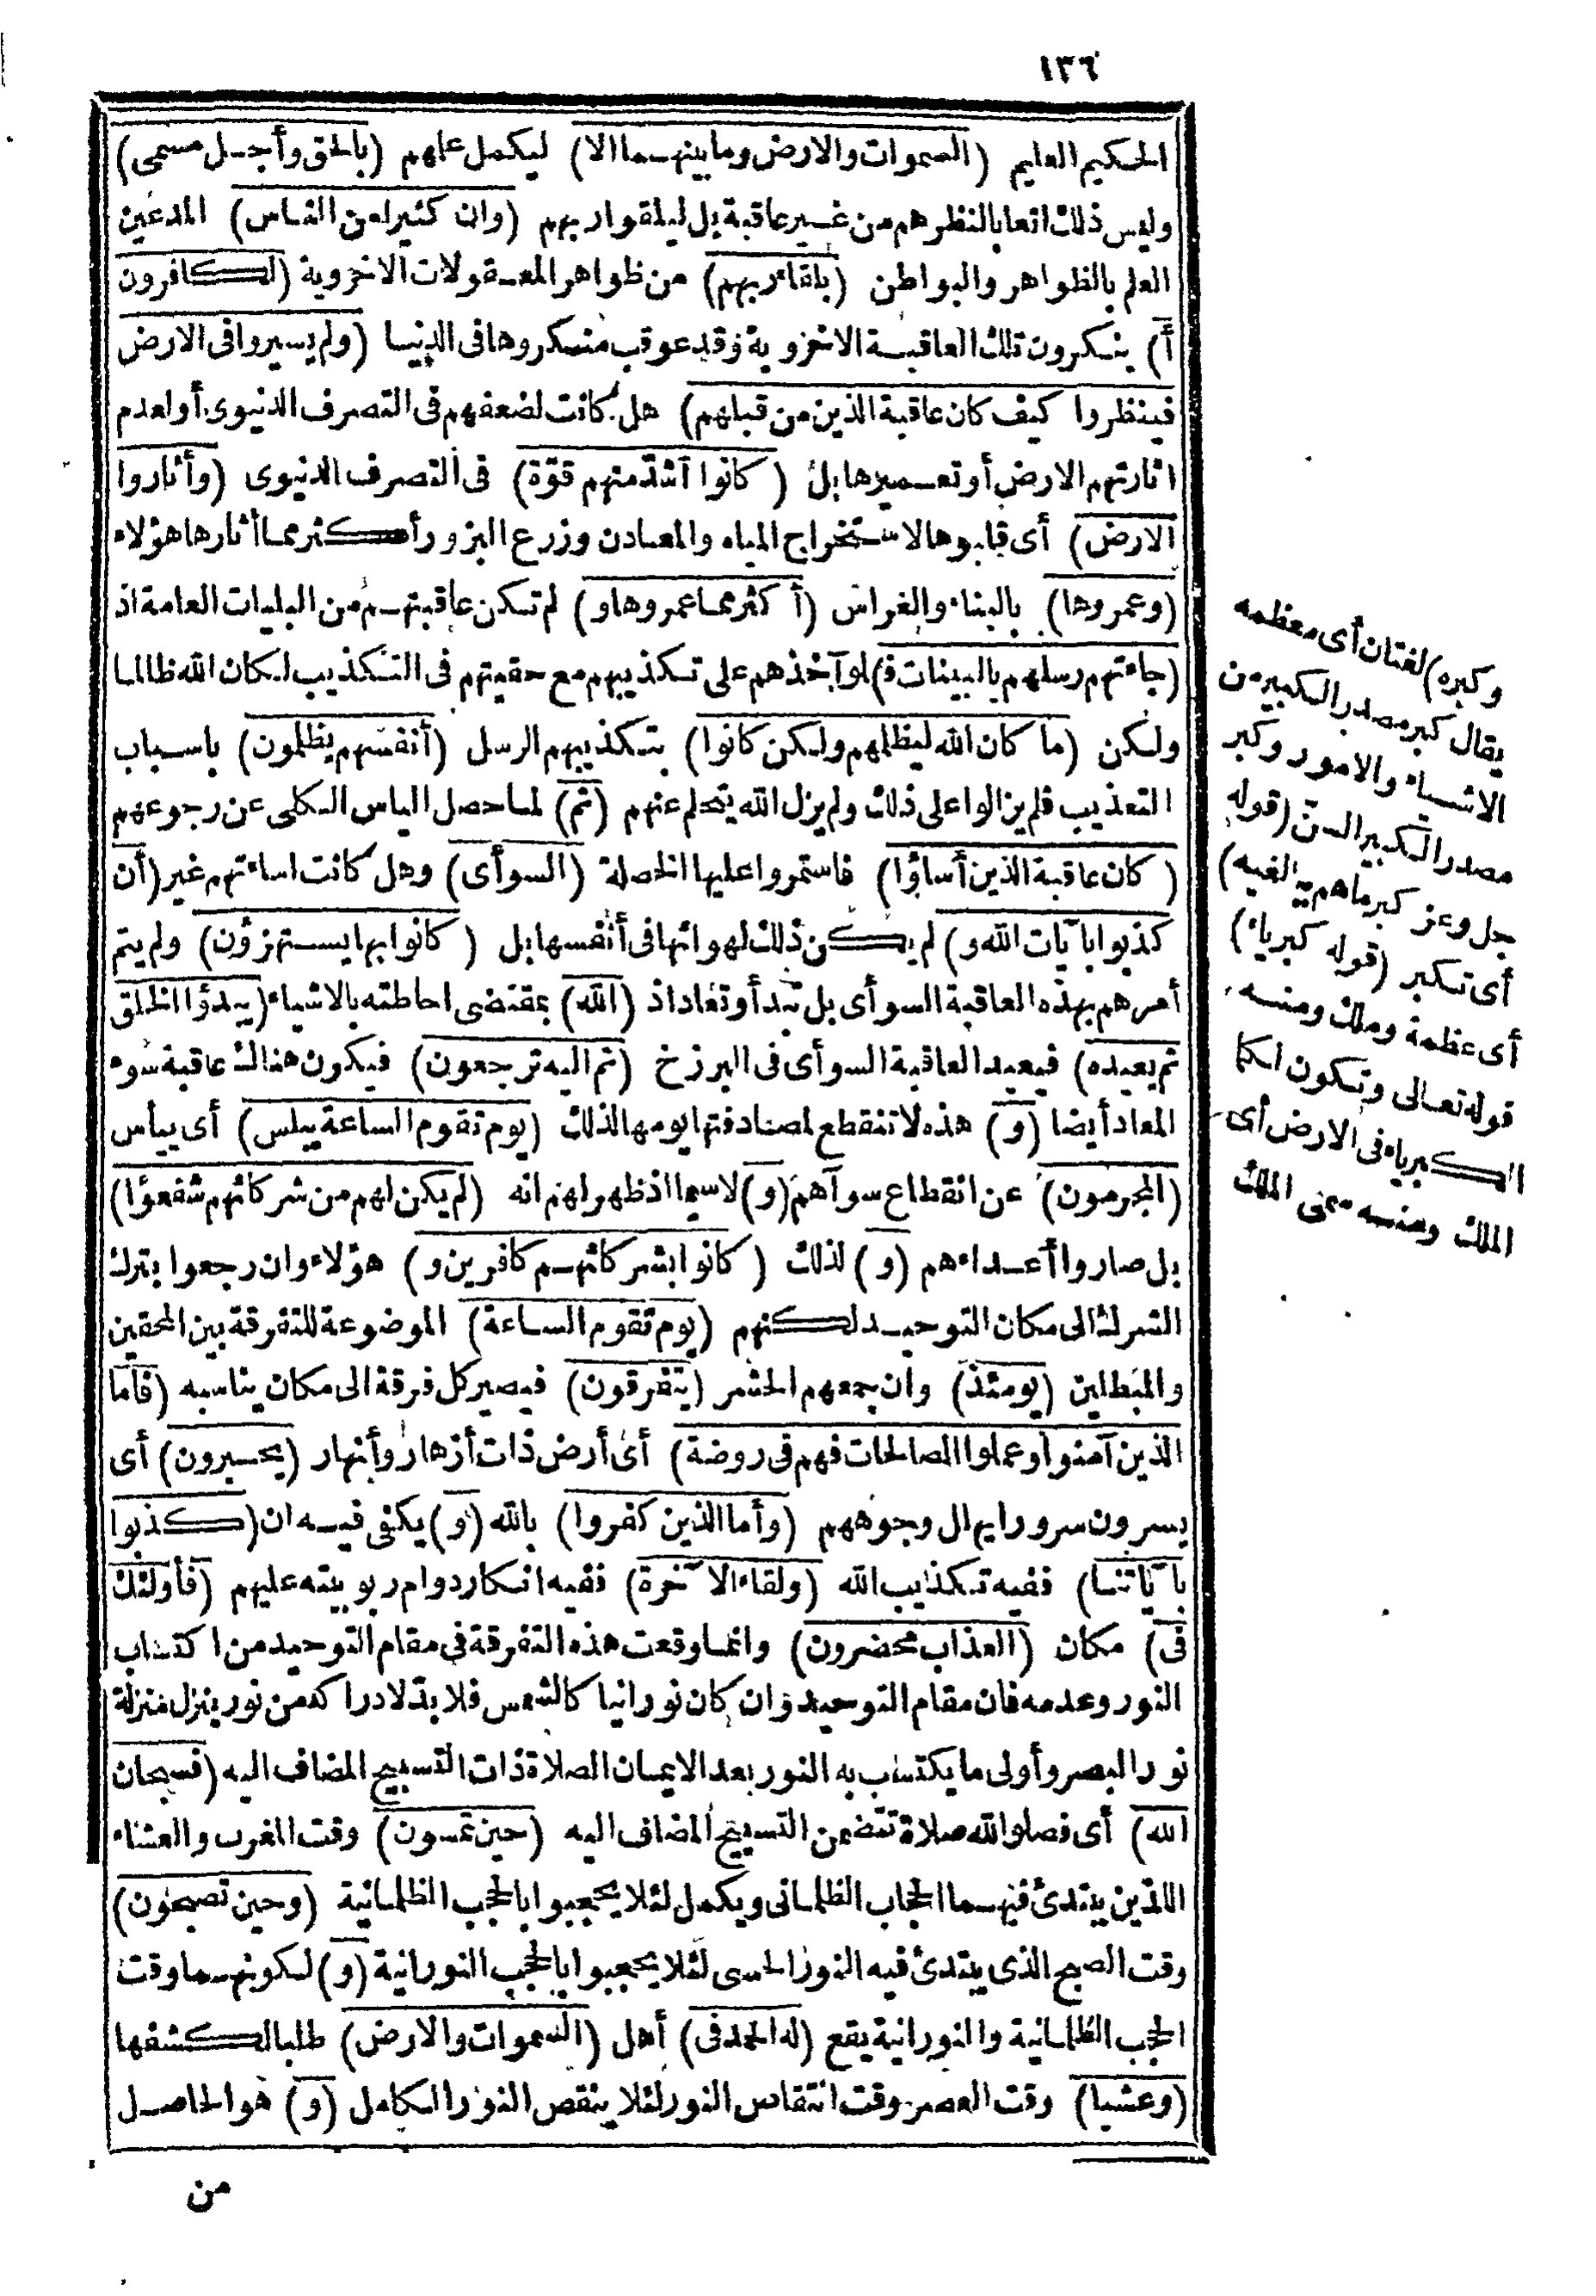 ١٣٦
الحكيم العليم (السموات والارض وما بينهما الا) ليكمل علمهم (بالحق وأجل مسمى)
وليس ذلك اتعابا لنظرهم من غير عاقبة بل ليلقوا ربهم (وان كثيرا من الناس) المدعين
العلم بالظواهر والبواطن (بلقاء ربهم) من ظواهر المعقولات الاخروية (لكافرون
أ) ينكرون تلك العاقبة الاخروية وقد عوقب منكروها فى الدنيا (ولم يسيروا فى الارض
فينظروا كيف كان عاقبة الذين من قبلهم) هل كانت لضعفهم فى التصرف الدنيوى أو لعدم
اثارتهم الارض أو تعميرها بل (كانوا أشدّ منهم قوّة) فى التصرف الدنيوى (وأثاروا
الارض) أى قلبوها لاستخراج المياه والمعادن وزرع البزور أكثر مما أثارها هؤلاء
(وعمروها) بالبناء والغراس (أكثر مما عمروها و) لم تكن عاقبتهم من البليات العامة اذ
(جاءتهم رسلهم بالبينات ف) لو آخذهم على تكذيبهم مع حقيتهم فى التكذيب لكان الله ظالما
ولكن (ما كان الله ليظلمهم ولكن كانوا) بتكذيبهم الرسل (أنفسهم يظلمون) باسباب
التعذيب فلم يزالوا على ذلك ولم يزل الله يحلم عنهم (ثم) لما حصل الياس الكلى عن رجوعهم
(كان عاقبة الذين أساؤا) فاستمروا عليها الخصلة (السوأى) وهل كانت اساءتهم غير (أن
كذبوا بآيات الله و) لم يكن ذلك لهوانها فى أنفسها بل (كانوا بها يستهزؤن) ولم يتم
أمرهم بهذه العاقبة السوأى بل تبدأ وتعاد اذ (الله) بمقتضى احاطته بالاشياء (يبدؤا الخلق
ثم يعيده) فيعيد العاقبة السوأى فى البرزخ (ثم اليه ترجعون) فيكون هنالك عاقبة سوء
المعاد أيضا (و) هذه لا تنقطع لمصادفتها يومها لذلك (يوم تقوم الساعة يبلس) أى ييأس
(المجرمون) عن انقطاع سوآهم (و) لا سيما اذ ظهر لهم انه (لم يكن لهم من شركائهم شفعؤا)
بل صاروا أعداءهم (و) لذلك (كانوا بشركائهم كافرين و) هؤلاء وان رجعوا بترك
الشرك الى مكان التوحيد لكنهم (يوم تقوم الساعة) الموضوعة للتفرقة بين المحقين
والمبطلين (يومئذ) وان جمعهم الحشر (يتفرقون) فيصير كل فرقة الى مكان يناسبه (فأما
الذين آمنوا وعملوا الصالحات فهم فى روضة) أى أرض ذات أزهار وأنهار (يحبرون) أى
يسرون سرورا يهال وجوههم (وأما الذين كفروا) بالله (و) يكفى فيه ان (كذبوا
بآياتنا) ففيه تكذيب الله (ولقاء الآخرة) ففيه انكار دوام ربوبيته عليهم (فأولئك
فى) مكان (العذاب محضرون) وانما وقعت هذه التفرقة فى مقام التوحيد من اكتساب
النور وعدمه فان مقام التوحيد وان كان نورانيا كالشمس فلا بدّ لادراكه من نور ينزل منزلة
نور البصر وأولى ما يكتسب به النور بعد الايمان الصلاة ذات التسبيح المضاف اليه (فسبحان
الله) أى فصلوا لله صلاة تتضمن التسبيح المضاف اليه (حين تمسون) وقت المغرب والعشاء
اللذين يبتدئ فيهما الحجاب الظلمانى ويكمل لئلا يحجبوا بالحجب الظلمانية (وحين تصبحون)
وقت الصبح الذى يبتدئ فيه النور الحسى لئلا يحجبوا بالحجب النورانية (و) لكونهما وقت
الحجب الظلمانية والنورانية يقع (له الحمد فى) أهل (السموات والارض) طلبا لكشفها
(وعشيا) وقت العصر وقت انتقاص النور لئلا ينقص النور الكامل (و) هو الحاصل
من
وكبره) لغتان أى معظمه
يقال كبر مصدر الكبير من
الاشياء والامور وكبر
مصدر الكبير السنّ (قوله
جل وعز كبر ما هم ببالغيه)
أى تكبر (قوله كبرياء)
أى عظمة وملك ومنه
قوله تعالى وتكون لكما
الكبرياء فى الارض أى
الملك ومنه سمى الملك